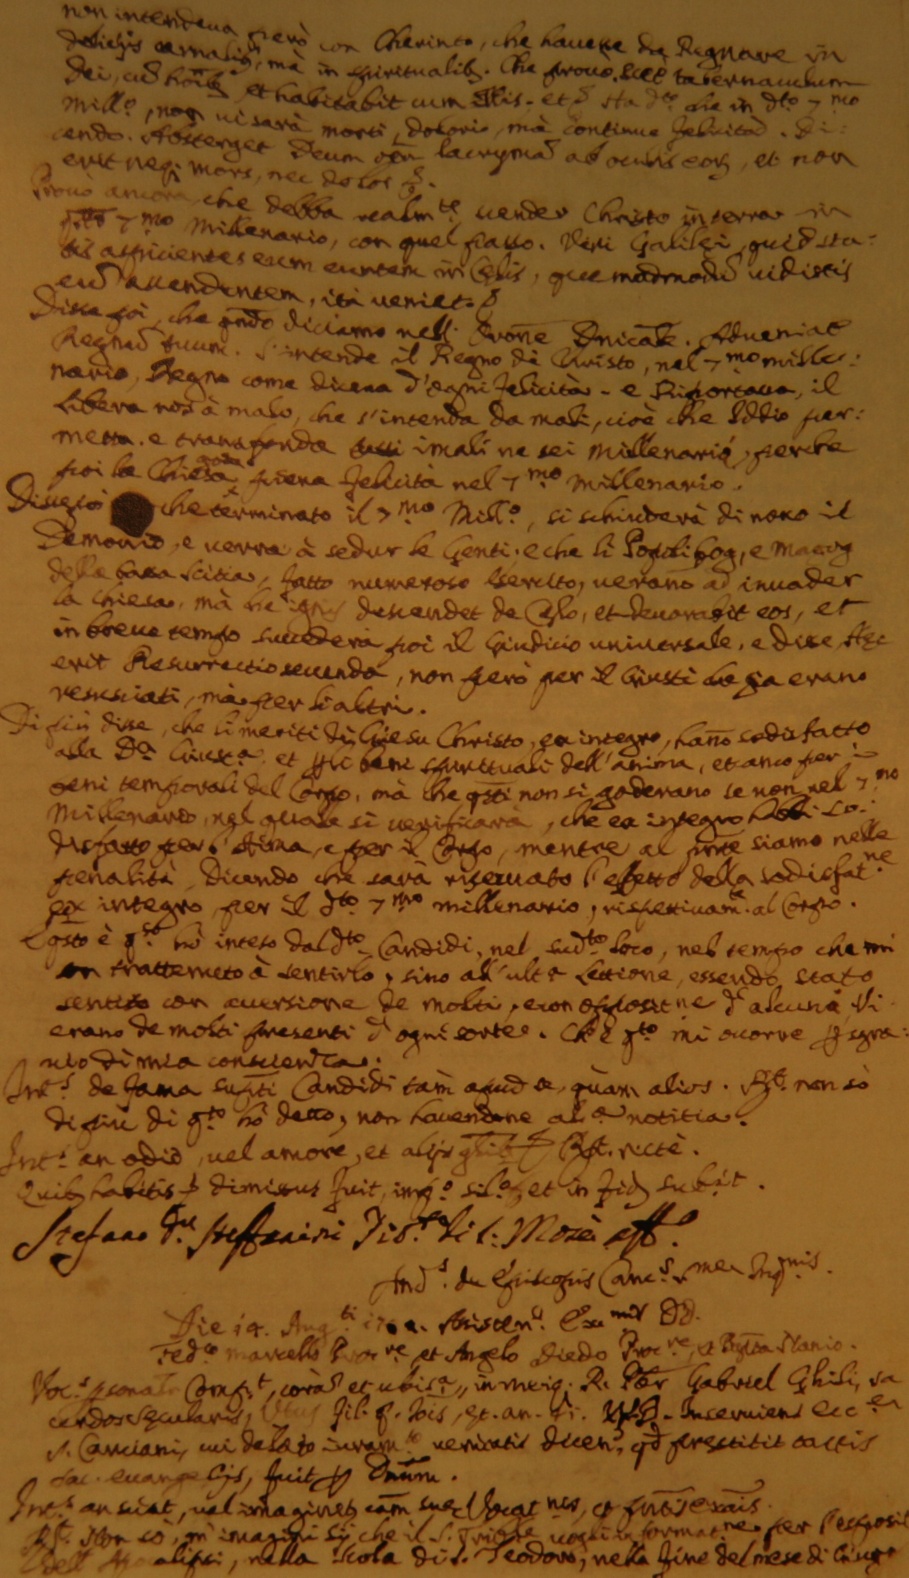 non intendeva però con Cherinto, che havesse da Regnare in
delitijs carnalib, mà in spiritualib. Che provò, Ecce tabernaculum
Dei, cu hoīb, et habitabit cum Illis. et che in dto 7 mo
Millo, non ui sarà morti, dolori, mà continue felicità. Di:
cendo. Absterget Deum oēm lacrymā ab oculis eoȝ, et non
erit neqȝ mors, nec dolor &.
Provò ancora, che debba realmte vender Christo in terra in
7 mo Millenario, con quel passo. Viri Galilei, quid sta:
tis aspicientes eum euntem in Celis, quemadmodū uidistis
eū ascendentem, ità veniet. &
Disse poi, che qndo diciamo nell' Orōne Dnicāle. Adveniat
Regnū tuum. S'intende il Regno di Christo, nel 7 mo mille:
nario, Regno come diceva d'ogni felicità. e Riportava, il
Libera nos à malo, che s'intenda da mali, cioè che Iddio per:
metta. e transponda tutti i mali ne sei millenarij, perche
poi la Chiesa goda piena felicità nel 7 mo millenario.
Disse poi che terminato il 7 mo Millo, si schiuderà di novo il
Demonio, e uerrà à sedur le Genti. e che li Popoli Gog, e Magog
della bassa Scitia, fatto numeroso Esercito, verano ad invader
la Chiesa, mà che ignis descendet de Celo, et devorabit eos, et
in breve tempo succederà poi il Giudicio universale, e disse Hec
erit Resurrectio secunda, non però per il Giusti che già erano
resusciati, mà per li altri.
Di più disse, che li meriti di Giesu Christo, ex integro, hano sodisfatto
alla Da Giusta. et beni spirituali dell'anima, et anco per i
beni temporali del Corpo, mà che qsti non si goderano se non nel 7 mo
Millenario, nel quale si verificarà, che ex integro habbi so:
disfatto per l'Anima, e per il Corpo, mentre al pnte siamo nelle
penalità, Dicendo che sarà riservato l'effetto della sodisfatne
ex integro, per il dto 7 mo millenario, rispettivamte al Corpo.
E qsto è qto hò inteso dal dto Candidi, nel sudto loco, nel tempo che mi
on trattenuto à sentirlo, sino all'ulta Lettione, essendo stato
sentito con auersione de molti, e con opposne d'alcuni, Vi
erano de molti presenti d'ogni sorte. Ch'è qto mi ocorre p sgra:
vio di mia conscienza.
Ints de fama supti Candidi tam apud se, quam alios. Rt. non sò
di più di qto hò detto, non havendone ala notitia.
Ints an odio, vel amore, et alijs glibȝ & Rt. rectè.
Quibȝ habitis & dimissus fuit, impo silo, et in fidȝ subit.
Stefano Steffanini di S: Moisè affo.
Ands de Episcopis Cancs. mei Inqnis.
Die 14. Augti Assisten. Exmis DD.
fedco Marcello Procre, et Angelo Diedo Procre, et Bŋta Nanio.
Vocs psonalr Compt, corā et ubi sa, in meiqȝ R. Pbr Gabriel Ghisi, sa
cerdos secularis, fil. q. Inserviens Ecclen
S. Canciani, cui delato iuramto veritatis dicen, qd prestitit tactis
sac. evangelijs, fuit p Dnum.
Ints an sciat, vel imaginet cām sue Vocatnis, et pntis exāis.
Rt. Non so, m' imagino sij che il S. Trible voglia informatne per l'esposit
dell' Apocalipsi, nella scola di S. Teodoro, nella fine del mese di Giugo